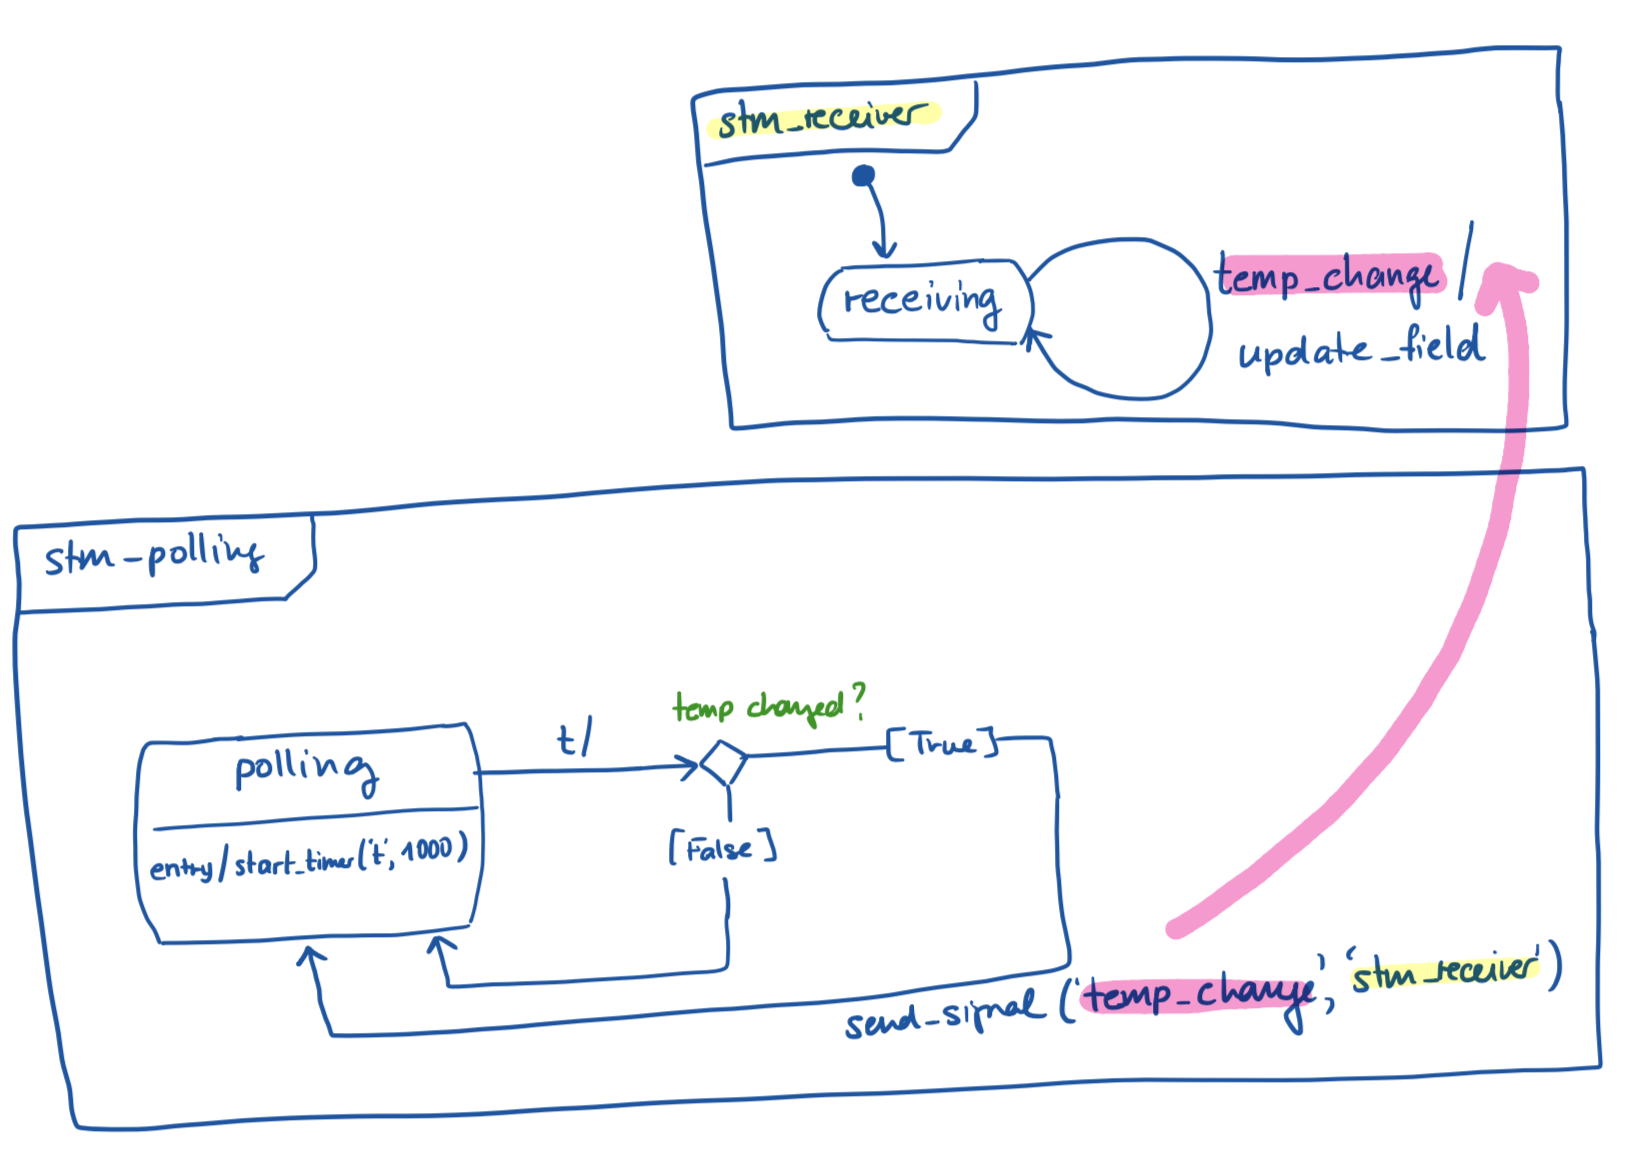 stm_receiver
receiving
temp_change /
update_field
stm-polling
polling
entry/start_timer('t', 1000)
t/
temp changed?
[True]
[False]
send_signal ('temp_change', 'stm_receiver')